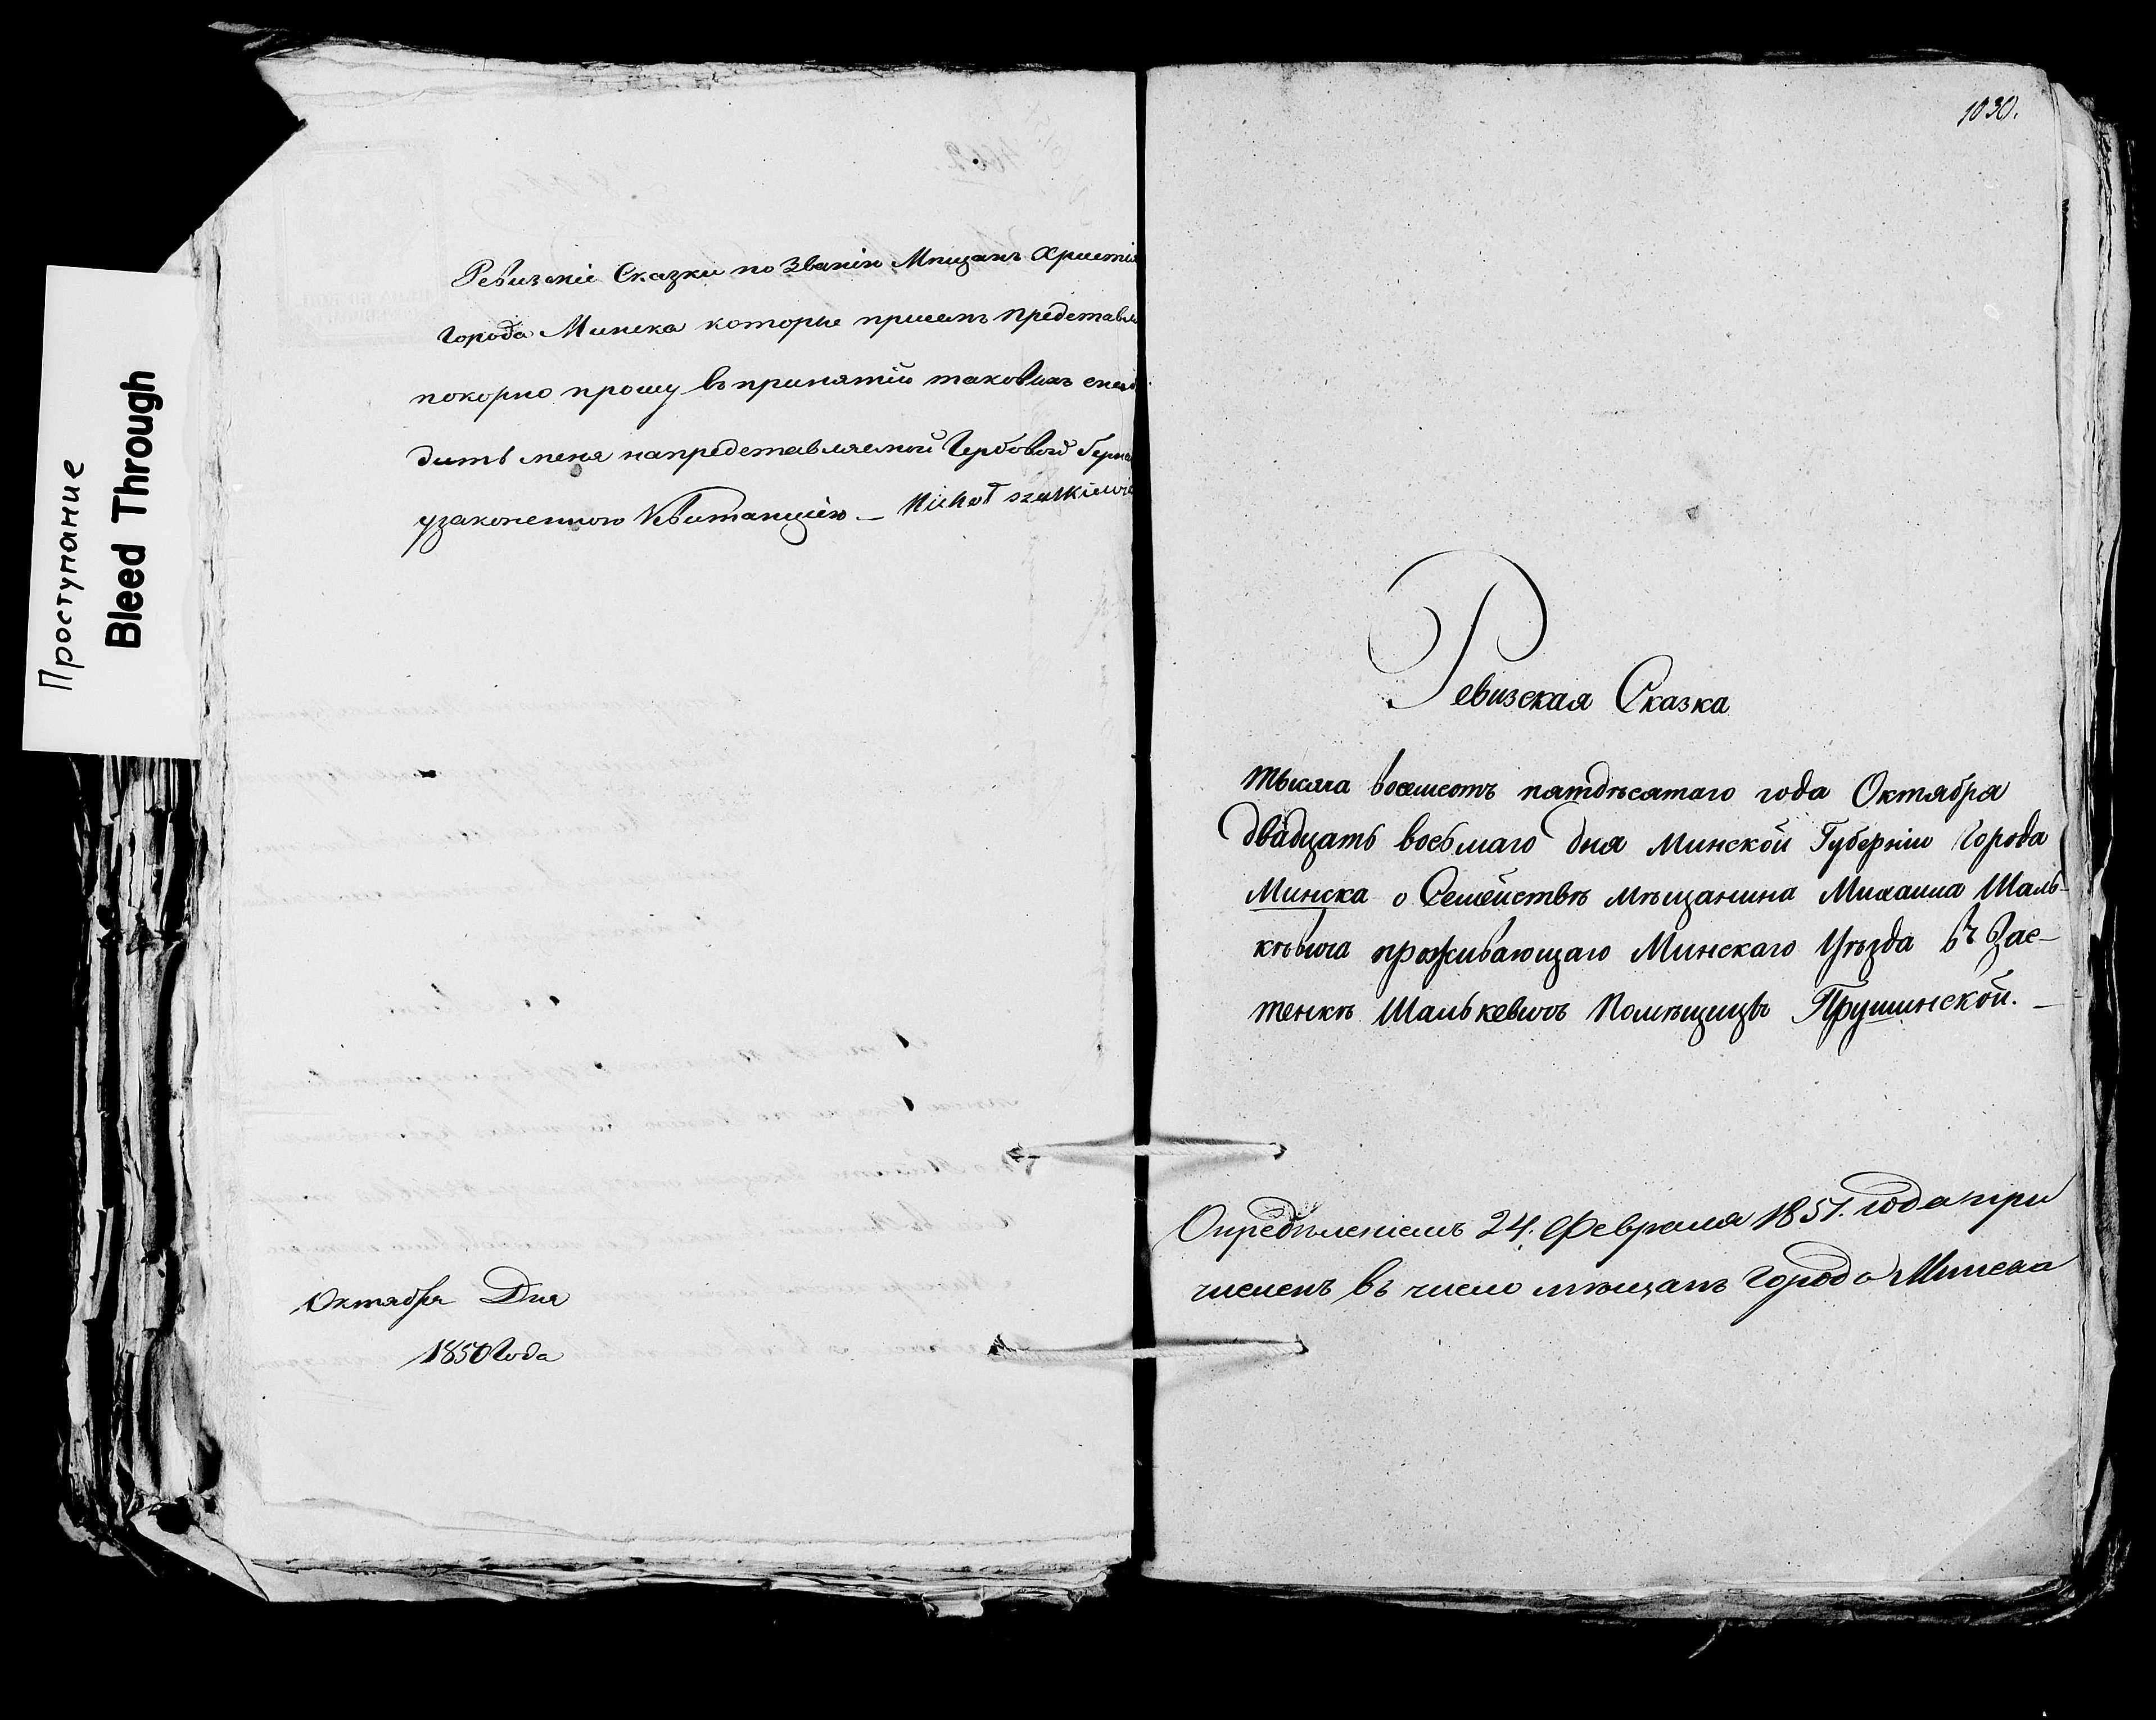 Проступание
Bleed Through
Ревизскіе Сказки по Званію Мѣщанъ Христіа
Города Минска которые присемъ представля
покорно прошу въ принятіи таковыхъ
дить меня на представляемой Гербовой бума
узаконенною Квитанціею — Michał Szalkiewic
Октября Дня
1850 Года
1030.
Ревизская Сказка
тысяча восемсотъ пятдѣсятаго года Октября
двадцать восьмаго дня Минской Губерніи Города
Минска о Семействѣ мѣщанина Михаила Шаль-
кѣвича проживающаго Минскаго Уѣзда въ Зас-
тенкѣ Шалькевичъ Помѣщицы Прушинской. —
Опредѣленіемъ 24. Февраля 1851. года при
численъ въ число мѣщанъ Города Минска